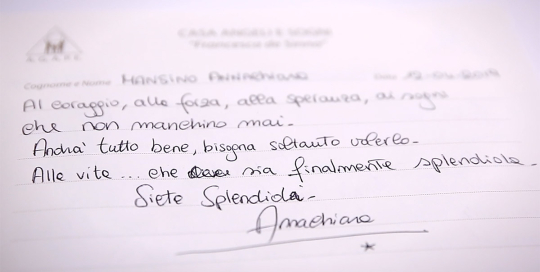 A.G.A.P.E.
CASA ANGELI E SOGNI
"Francesca de Sessa"
Cognome e Nome MANSINO ANNACHIARA
Al coraggio, alla forza, alla speranza, ai sogni
che non manchino mai.
Andrà tutto bene, bisogna soltanto volerlo.
Alla vita ... che sia finalmente splendida.
Siete Splendidi.
Annachiara